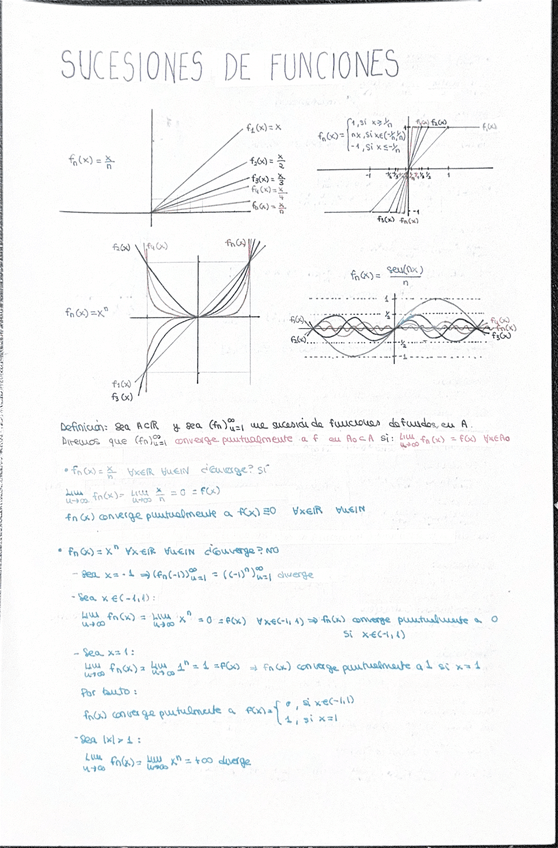 SUCESIONES DE FUNCIONES
fn(x) = x/n
f1(x) = x
f2(x) = x/2
f3(x) = x/3
f4(x) = x/4
fn(x) = x/n
fn(x) = { 1, si x ≥ 1/n
nx, si x ∈ (-1/n, 1/n)
-1, si x ≤ -1/n
f2(x) f1(x)
-1 1
-1
f3(x) fn(x)
f2(x) f4(x) fn(x)
fn(x) = x^n
f1(x)
f3(x)
fn(x) = sen(nx)/n
1
1/2
-1/2
-1
f1(x)
f2(x)
fn(x)
f3(x)
Definición: Sea A⊂ℝ y sea (fn)_{n=1}^∞ una sucesión de funciones definidas en A.
Diremos que (fn)_{n=1}^∞ converge puntualmente a f en A0 ⊂ A si: lim_{n→∞} fn(x) = f(x) ∀x∈A0
• fn(x) = x/n ∀x∈ℝ ∀n∈ℕ ¿Converge? SI
lim_{n→∞} fn(x) = lim_{n→∞} x/n = 0 = f(x)
fn(x) converge puntualmente a f(x) ≡ 0 ∀x∈ℝ ∀n∈ℕ
• fn(x) = x^n ∀x∈ℝ ∀n∈ℕ ¿Converge? NO
- Sea x = -1 ⇒ (fn(-1))_{n=1}^∞ = ((-1)^n)_{n=1}^∞ diverge
- Sea x ∈ (-1,1) :
lim_{n→∞} fn(x) = lim_{n→∞} x^n = 0 = f(x) ∀x∈(-1,1) ⇒ fn(x) converge puntualmente a 0
si x∈(-1,1)
- Sea x = 1 :
lim_{n→∞} fn(x) = lim_{n→∞} 1^n = 1 = f(x) ⇒ fn(x) converge puntualmente a 1 si x = 1.
Por tanto :
fn(x) converge puntualmente a f(x) = { 0, si x∈(-1,1)
1, si x=1
- Sea |x| > 1 :
lim_{n→∞} fn(x) = lim_{n→∞} x^n = +∞ diverge